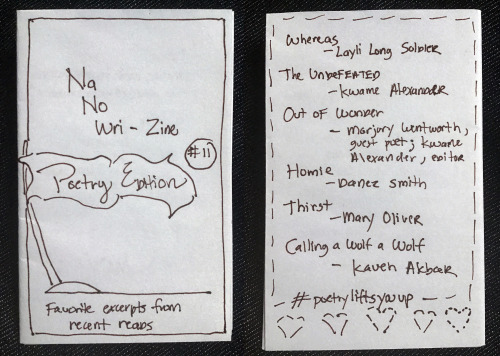 Na
No
Wri - Zine
#11
Poetry Edition
Favorite excerpts from
recent reads
Whereas
- Layli Long Soldier
The Undefeated
- Kwame Alexander
Out of Wonder
- Marjory Wentworth,
guest poet; Kwame
Alexander, editor
Homie
- Danez Smith
Thirst
- Mary Oliver
Calling a Wolf a Wolf
- Kaveh Akbar
#poetryliftsyouup